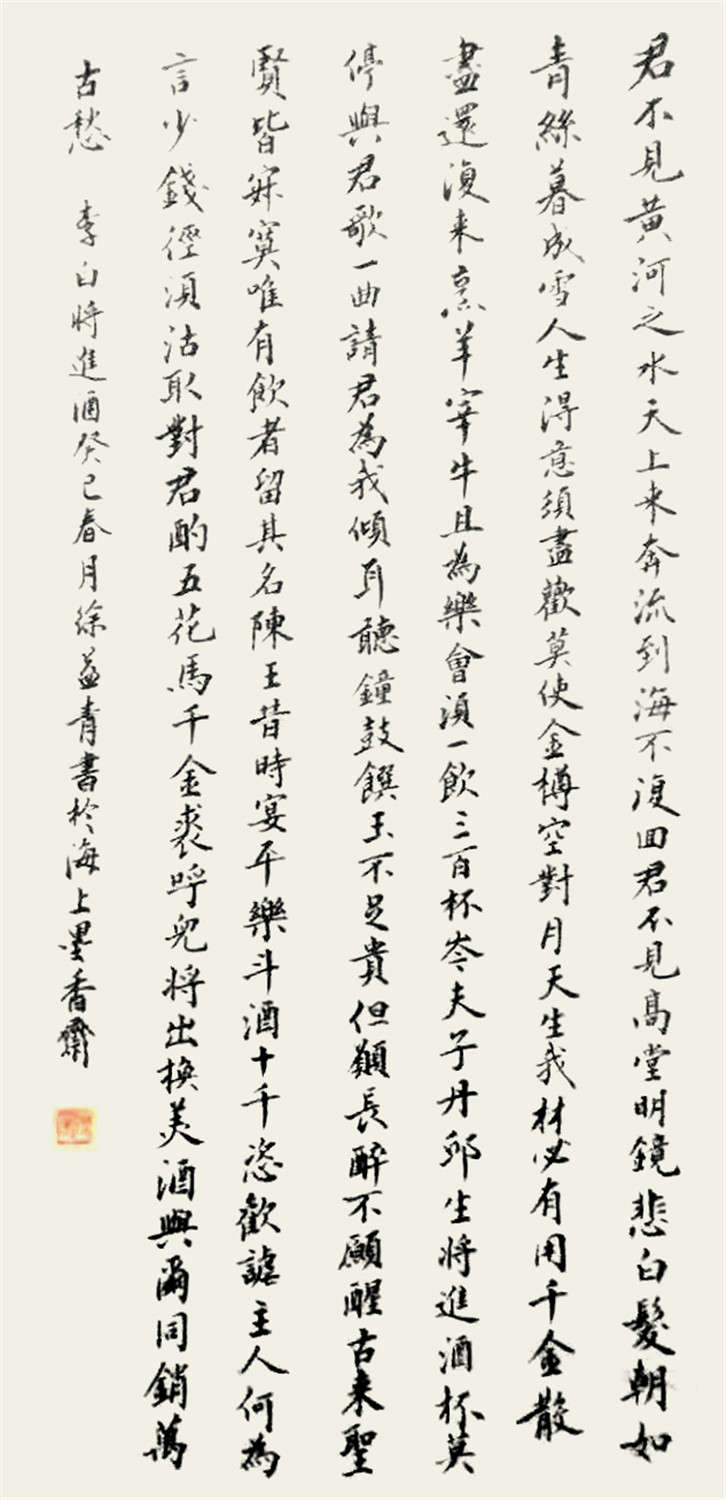 君不見黃河之水天上来奔流到海不復回君不見高堂明鏡悲白髮朝如
青絲暮成雪人生得意須盡歡莫使金樽空對月天生我材必有用千金散
盡還復来烹羊宰牛且為樂會須一飲三百杯岑夫子丹邱生將進酒杯莫
停與君歌一曲請君為我傾耳聽鐘鼓饌玉不足貴但願長醉不願醒古来聖
賢皆寂寞唯有飲者留其名陳王昔時宴平樂斗酒十千恣歡謔主人何為
言少錢徑須沽取對君酌五花馬千金裘呼兒將出換美酒與爾同銷萬
古愁 李白將進酒癸巳春月徐益青書於海上墨香齋